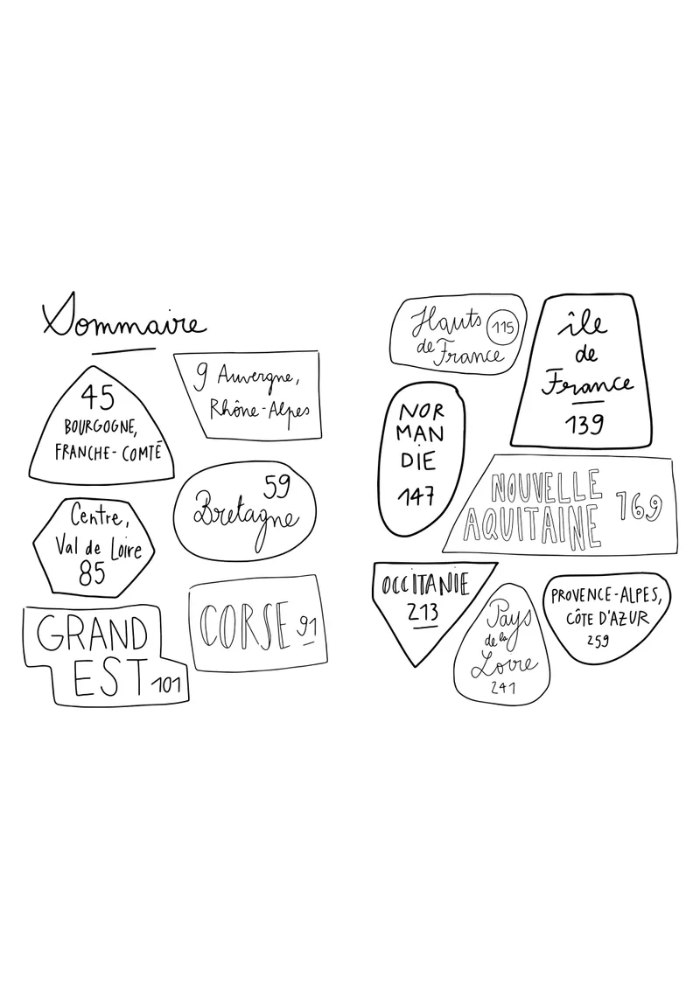 Sommaire
9 Auvergne,
Rhône-Alpes
45
BOURGOGNE,
FRANCHE-COMTÉ
59
Bretagne
Centre,
Val de Loire
85
CORSE 91
GRAND
EST 101
Hauts
de France
115
île
de
France
139
NOR
MAN
DIE
147
NOUVELLE
AQUITAINE
169
OCCITANIE
213
Pays
de la
Loire
241
PROVENCE-ALPES,
CÔTE D'AZUR
259